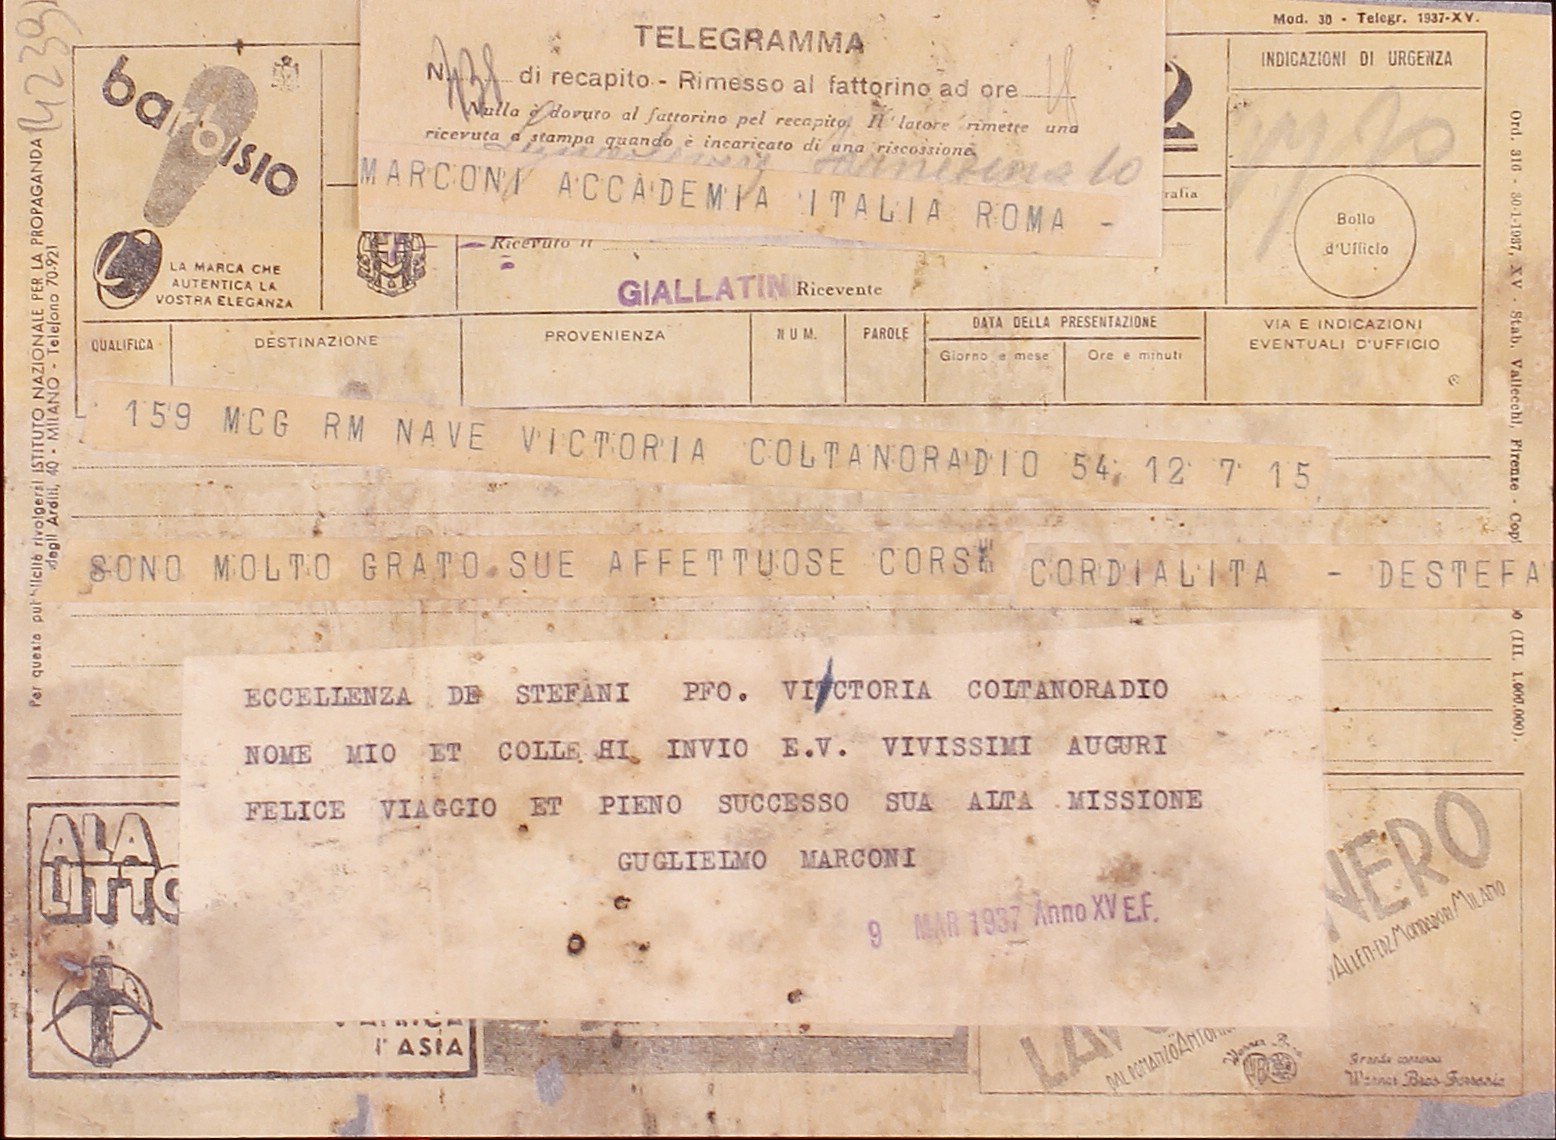 Mod. 30 - Telegr. 1937-XV.
TELEGRAMMA
N. di recapito - Rimesso al fattorino ad ore
Nulla è dovuto al fattorino pel recapito. Il latore rimette una
ricevuta a stampa quando è incaricato di una riscossione
MARCONI ACCADEMIA ITALIA ROMA -
INDICAZIONI DI URGENZA
Bollo
d'Ufficio
barbisio
LA MARCA CHE
AUTENTICA LA
VOSTRA ELEGANZA
Ricevuto il
GIALLATINI Ricevente
QUALIFICA
DESTINAZIONE
PROVENIENZA
NUM.
PAROLE
DATA DELLA PRESENTAZIONE
Giorno e mese
Ore e minuti
VIA E INDICAZIONI
EVENTUALI D'UFFICIO
159 MCG RM NAVE VICTORIA COLTANORADIO 54 12 7 15
SONO MOLTO GRATO SUE AFFETTUOSE CORSE CORDIALITA - DESTEFA
ECCELLENZA DE STEFANI PFO. VITCTORIA COLTANORADIO
NOME MIO ET COLLE HI INVIO E.V. VIVISSIMI AUGURI
FELICE VIAGGIO ET PIENO SUCCESSO SUA ALTA MISSIONE
GUGLIELMO MARCONI
9 MAR 1937 Anno XV E.F.
ALA
LITTO
l'ASIA
NERO
ALLEN-EDIZ MONDADORI MILANO
DAL ROMANZO
Warner Bros
Grande concorso
Warner Bros-Ferrania
Per questa pubblicità rivolgersi ISTITUTO NAZIONALE PER LA PROPAGANDA
degli Arditi, 40 - MILANO - Telefono 70-921
Ord. 316 - 30-1-1937, XV - Stab. Vallecchi, Firenze - Cop (III. 1.000.000).